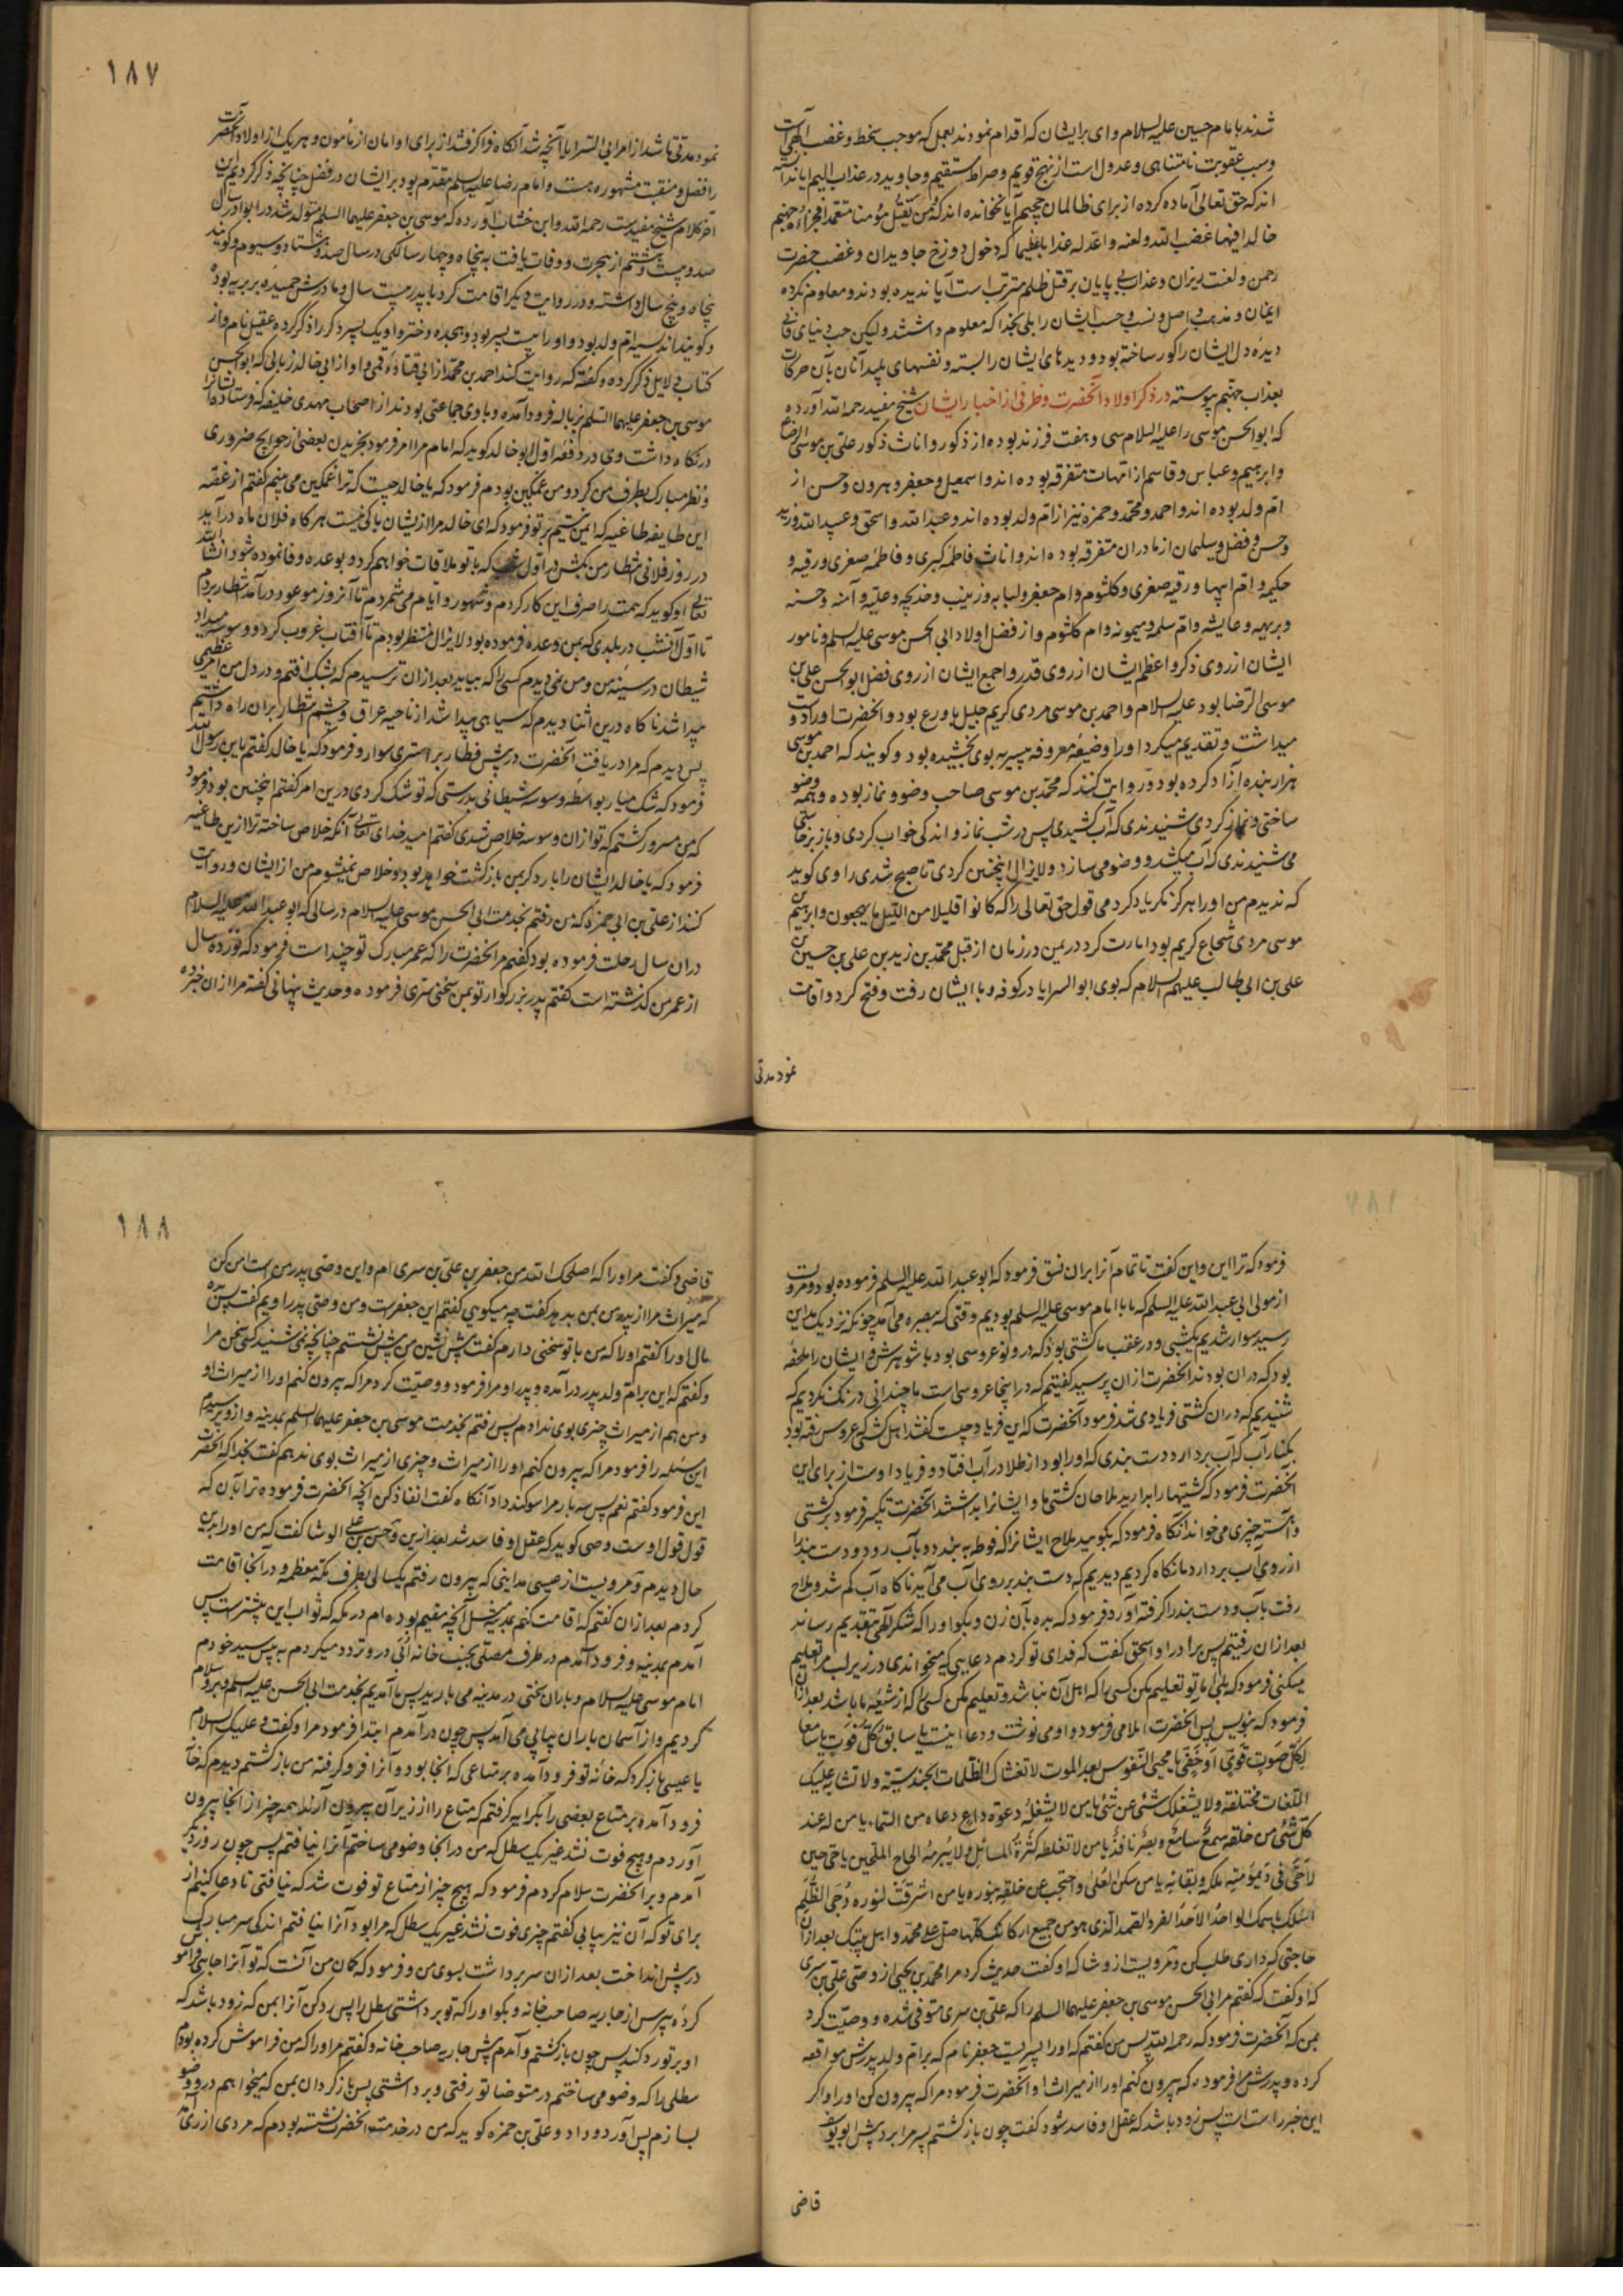 شدند بامام حسین علیه السلام و ای برایشان که اقدام نمودند بعمل که موجب سخط و غضب الهی است
و سبب عقوبت نامتناهی و عدول است از نهج قویم و صراط مستقیم و جاوید در عذاب الیم ایا ندانسته
اند که حق تعالی آماده کرده از برای ظالمان جحیم آیا نخوانده اند که و من یقتل مؤمنا متعمدا فجزاؤه جهنم
خالدا فیها و غضب الله و لعنه و اعد له عذابا عظیما که دخول دوزخ جاویدان و غضب حضرت
رحمن و لعنت یزدان و عذاب بی پایان بر قتل ظلم مترتب است آیا ندیده بودند و معلوم نکرده
ایمان و مذهب و اصل و نسب و حسب ایشان را بلی بخدا که معلوم داشتند و لیکن حب دنیای فانی
دیده دل ایشان را کور ساخته بود و دیدهای ایشان را بسته و نفسهای پلید آنان بآن حرکات
بعذاب جهنم پیوسته در ذکر اولاد آنحضرت و طرفی از اخبار ایشان شیخ مفید رحمه الله آورده
که ابوالحسن موسی را علیه السلام سی و هفت فرزند بوده از ذکور و اناث ذکور علی بن موسی الرضا ع
و ابرهیم و عباس و قاسم از امهات متفرقه بوده اند و اسمعیل و جعفر و هرون و حسن از
ام ولد بوده اند و احمد و محمد و حمزه نیز از ام ولد بوده اند و عبد الله و اسحق و عبید الله و زید
و حسن و فضل و سلیمان از مادران متفرقه بوده اند و اناث فاطمه کبری و فاطمه صغری و رقیه و
حکیمه و ام ابیها و رقیه صغری و کلثوم و ام جعفر و لبابه و زینب و خدیجه و علیه و آمنه و حسنه
و بریهه و عایشه و ام سلمه و میمونه و ام کلثوم و از فضل اولاد ابی الحسن موسی علیه السلم و نامور
ایشان از روی ذکر و اعظم ایشان از روی قدر و اجمع ایشان از روی فضل ابو الحسن علی بن
موسی الرضا بود علیه السلام و احمد بن موسی مردی کریم جلیل با ورع بود و انحضرت او را دوست
میداشت و تقدیم میکرد او را و ضیعه معروفه بیسیریه بوی بخشیده بود و گویند که احمد بن موسی
هزار بنده آزاد کرده بود و روایت کنند که محمد بن موسی صاحب وضو و نماز بوده و همه وضو
ساختی و نماز کردی شنیدندی که آب کشیدی پس در شب نماز و اندکی خواب کردی و باز برخاستی
می شنیدندی که آب میکشد و وضو می سازد و لایزال اینچنین کردی تا صبح شدی راوی گوید
که ندیدم من او را هرگز مگر یاد کردمی قول حق تعالی را که کانوا قلیلا من اللیل ما یهجعون و ابرهیم بن
موسی مردی شجاع کریم بود امارت کرد در یمن در زمان از قبل محمد بن زید بن علی بن حسین بن
علی بن ابی طالب علیهم السلام که بوی ابو السرایا در کوفه و با ایشان رفت و فتح کرد و اقامت
نمود مدتی
١٨٧
نمود مدتی تا شد از امر ابی السرایا آنچه شد آنگاه فرا گرفتند از برای او امان از مأمون و هر یک از اولاد آنحضرت
را فضل و منقبت مشهوره هست و امام رضا علیه السلم مقدم بود بر ایشان در فضل چنانچه ذکر کردیم این
آخر کلام شیخ مفید است رحمه الله و ابن خشاب آورده که موسی بن جعفر علیهما السلم متولد شد در ابوا در سال
صد و بیست و هشتم از هجرت و وفات یافت به پنجاه و چهار سالگی در سال صد و هشتاد و سیوم و گویند
پنجاه و پنج سال داشته و در روایت دیگر اقامت کرد با پدر بیست سال و مادرش حمیده بربریه بوده
و گویند اندلسیه ام ولد بود و او را بیست پسر بود و هجده دختر و او یک پسر دگر را ذکر کرده عقیل نام و از
کتاب دلایل ذکر کرده و گفته که روایت کند احمد بن محمد از ابی قتاده قمی و او از ابی خالد زبالی که ابو الحسن
موسی بن جعفر علیهما السلم بزباله فرود آمده و با وی جماعتی بودند از اصحاب مهدی خلیفه که فرستاده تا انرا
در نگاه داشت وی در دفعه اول ابو خالد گوید که امام مرا امر فرمود بخریدن بعضی از حوایج ضروری
و نظر مبارک بطرف من کرد و من غمگین بودم فرمود که یا خالد چیست که ترا غمگین می بینم گفتم از غصه
این طایفه طاغیه که ایمن نیستیم بر تو فرمود که ای خالد مرا از یشان باکی نیست هر گاه فلان ماه درآید
در روز فلانی انتظار من بکش در اول شب که با تو ملاقات خواهم کرد و بوعده وفا نموده شود انشاء الله
تعالی او گوید که همت را صرف این کار کردم و شهور و ایام می شمردم تا آنروز موعود درآمد انتظار بردم
تا اول آنشب در بلدی که بمن وعده فرموده بود لایزال منتظر بودم تا آفتاب غروب کرد و وسوسه میداد
شیطان در سینه من و من نمی دیدم کسی را که بیاید بعد از ان ترسیدم که بشک افتم و در دل من امری عظیمی
پیدا شد ناگاه درین اثنا دیدم که سیاهی پیدا شد از ناحیه عراق و چشم انتظار بران راه داشتیم
پس دیدم که مرا دریافت آنحضرت در پیش قطار بر استری سوار و فرمود که یا خالد گفتم یا بن رسول الله
فرمود که شک میار بواسطه وسوسه شیطانی بدرستی که تو شک کردی درین امر گفتم اینچنین بود فرمود
که من مسرور گشتم که تو از ان وسوسه خلاص شدی گفتم امید خدای تعالی آنکه خلاص ساخته ترا ازین طاغیه
فرمود که یا خالد ایشان را بار دگر بمن بازگشت خواهد بود و خلاص نمیشوم من از ایشان و روایت
کنند از علی بن ابی حمزه که من رفتم بخدمت ابی الحسن موسی علیه السلام در سالی که ابو عبد الله علیه السلام
دران سال رحلت فرموده بود گفتم مر انحضرت را که عمر مبارک تو چند است فرمود که نوزده سال
از عمر من گذشته است گفتم پدر بزرگوار تو بمن سخنی سری فرموده و حدیث پنهانی گفته مرا از ان خبر ده
فرمود که ترا این و این گفت تا تمام آنرا بران نسق فرمود که ابو عبد الله علیه السلم فرموده بود و مرویست
از مولی ابی عبد الله علیه السلم که ما با امام موسی علیه السلم بودیم وقتی که ببصره می آمد چونکه نزدیک مداین
رسید سوار شدیم بکشتی و در عقب ما کشتی بود که درو نو عروسی بود با شوهرش و ایشان را ملحفه
بود که دران بودند انحضرت از ان پرسید گفتیم که در اینجا عروسی است ما چندانی درنگ نکردیم که
شنیدیم که دران کشتی فریادی شد فرمود آنحضرت که این فریاد چیست گفتند اهل کشتی عروس رفته بود
بکنار آب که آب بردارد دست بندی که او را بود از طلا در آب افتاد و فریاد او ست از برای این
انحضرت فرمود که کشتیها را بدارید ملاحان کشتی ما و ایشانرا بداشتند انحضرت تکیه فرمود بر کشتی
و آهسته چیزی می خواند آنگاه فرمود که بگویید ملاح ایشانرا که فوطه به بندد و بآب رود و دست بند را
از روی آب بردارد ما نگاه کردیم دیدیم که دست بند بر روی آب می آید ناگاه آب کم شد و ملاح
رفت بآب و دست بند را گرفته آورد فرمود که بده بآن زن و بگو او را که شکر الهی بتقدیم رساند
بعد از ان رفتیم پس برادر او اسحق گفت که فدای تو کردم دعایی که میخواندی ما در زیر لب مرا تعلیم
میکنی فرمود که بلی اما تو تعلیم مکن کسی را که اهل آن نباشد و تعلیم مکن کسی را که از شیعه ما باشد بعد از ان
فرمود که بنویس پس آنحضرت املا می فرمود و او می نوشت و دعا اینست یا سابق کل فوت یا سامعا
لکل صوت قوی او خفی یا محیی النفوس بعد الموت لا تغشاک الظلمات الحندسیة و لا تشابه علیک
اللغات مختلفة و لا یشغلک شئ عن شئ یا من لا یشغله دعوة داع دعاه من السماء یا من له عند
کل شئ من خلقه سمع سامع و بصر نافذ یا من لا تغلطه کثرة المسائل و لا یبرمه الحاح الملحین یا حی حین
لا حی فی دیمومیة ملکه و بقائه یا من سکن العلی و احتجب عن خلقه بنوره یا من اشرقت لنوره دجی الظلم
اسئلک باسمک الواحد الاحد الفرد الصمد الذی هو من جمیع ارکانک کلها صل علی محمد و اهل بیتک بعد از ان
حاجتی که داری طلب کن و مرویست از وشا که او گفت حدیث کرد مرا محمد بن یحیی از وصی علی بن سری
که او گفت که گفتم مر ابی الحسن موسی بن جعفر علیهما السلم را که علی بن سری متوفی شده و وصیت کرد
بمن که آنحضرت فرمود که رحمه الله پس من گفتم که او را پسریست جعفر نام که بر ام ولد پدرش مواقعه
کرده و پدرش مرا فرموده که بیرون کنم او را از میراث او آنحضرت فرمود مرا که بیرون کن او را و اگر
این خبر راست است پس زود باشد که عقل او فاسد شود گفت چون بازگشتم پسر مرا برد پیش ابو یوسف
قاضی
١٨٨
قاضی و گفت مر او را که اصلحک الله من جعفر بن علی بن سری ام و این وصی پدر من است امر کن
که میراث مرا از پدر من بمن بدهد گفت چه میگویی گفتم این جعفرست و من وصی پدر اویم گفت پس بده
مال او را گفتم او را که من با تو سخنی دارم گفت پیش نشین من پیش نشستم چنانچه نمی شنید کسی سخن مرا
و گفتم که این بر ام ولد پدر درآمده و پدر او مرا فرمود و وصیت کرد مرا که بیرون کنم او را از میراث او
و من هم از میراث چیزی بوی ندادم پس رفتم بخدمت موسی بن جعفر علیهما السلم بمدینه و از و پرسیدم
این مسئله را فرمود مرا که بیرون کنم او را از میراث و چیزی از میراث بوی ندهم گفت بخدا که آنحضرت
این فرمود گفتم نعم پس سه بار مرا سوگند داد آنگاه گفت انفاذ کن آنچه انحضرت فرموده ترا بآن که
قول قول اوست وصی گوید که عقل او فاسد شد بعد ازین و حسن بن علی الوشا گفت که من او را برین
حال دیدم و مرویست از عیسی مداینی که بیرون رفتم یکسالی بطرف مکه معظمه و در آنجا اقامت
کردم بعد از ان گفتم که اقامت کنم بمدینه مثل آنچه مقیم بوده ام در مکه که ثواب این بیشترست پس
آمدم بمدینه و فرود آمدم در طرف مصلی بجنب خانه ابی ذر و تردد میکردم به پیش سید خودم
امام موسی علیه السلام و باران سختی در مدینه می بارید پس ما آمدیم بخدمت ابی الحسن علیه السلم و بر و سلام
کردیم و از آسمان باران پیاپی می آمد پس چون درآمدم ابتدا فرمود مرا و گفت و علیک السلام
یا عیسی باز گرد که خانه تو فرود آمده بر متاعی که آنجا بود و آنرا فرو گرفته من باز گشتم دیدم که خانه
فرود آمده بر متاع بعضی را بکرایه گرفتم که متاع را از زیر آن بیرون آرند همه چیز از آنجا بیرون
آوردم و هیچ فوت نشد غیر یک سطل که من در آنجا وضو می ساختم آنرا نیافتم پس چون روز دیگر
آمدم و بر انحضرت سلام کردم فرمود که هیچ چیز از متاع تو فوت شد که نیافتی تا دعا کنیم از
برای تو که آن نیز بیابی گفتم چیزی فوت نشد غیر یک سطل که مرا بود آنرا نیافتم اندکی سر مبارک
در پیش انداخت بعد از ان سر برداشت بسوی من و فرمود که گمان من آنست که تو آنرا جایی فراموش
کرده بپرس از جاریه صاحب خانه و بگو او را که تو برداشتی سطل را پس رد کن آنرا بمن که زود باشد که
او بر تو رد کند پس چون بازگشتم و آمدم پیش جاریه صاحب خانه و گفتم مر او را که من فراموش کرده بودم
سطلی را که وضو می ساختم در متوضا تو رفتی و برداشتی پس بازگردان بمن که میخواهم درو وضو
بسازم پس آورد و داد و علی بن حمزه گوید که من در خدمت انحضرت نشسته بودم که مردی از ری